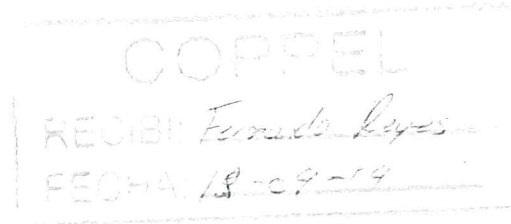 COPPEL
RECIBI: Fernando Reyes
FECHA: 18-09-19